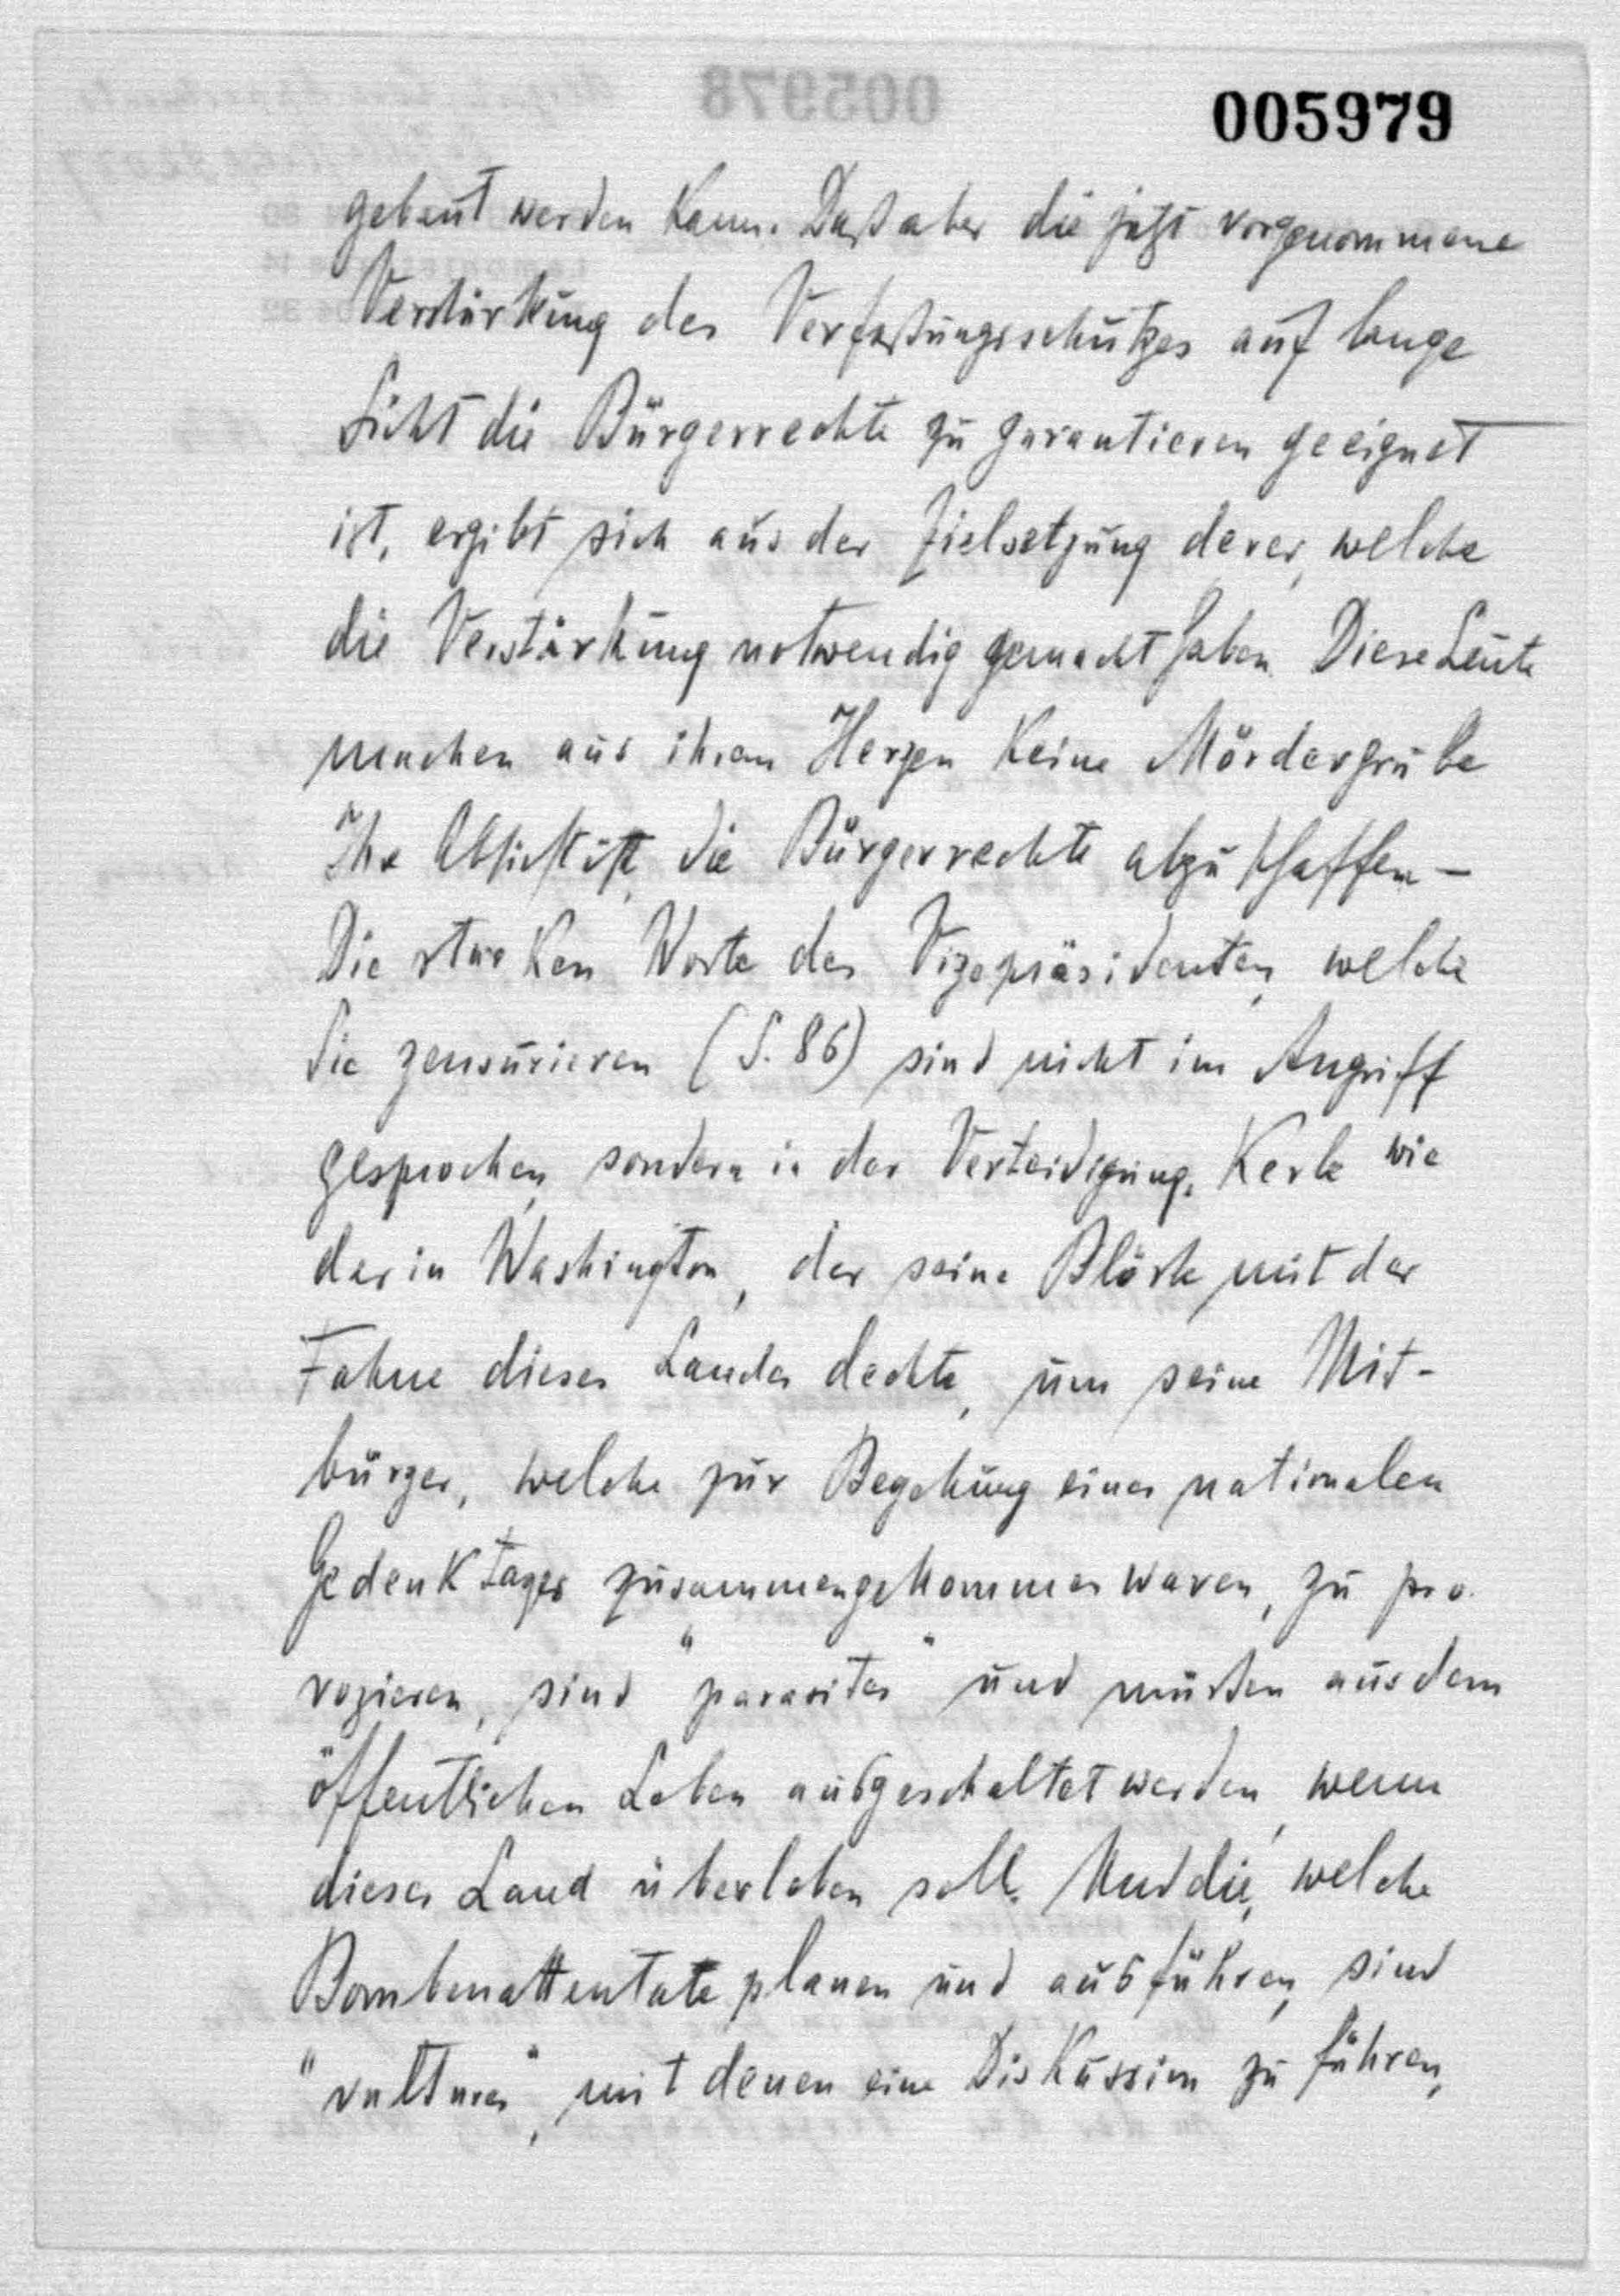 005979
gebaut werden kann. Daß aber die jetzt vorgenommene
Verstärkung des Verfaßungsschutzes auf lange
Sicht die Bürgerrechte zu garantieren geeignet
ist, ergibt sich aus der Zielsetzung derer, welche
die Verstärkung notwendig gemacht haben. Diese Leute
machen aus ihrem Herzen keine Mördergrube
Ihre Absicht ist, die Bürgerrechte abzuschaffen -
Die starken Worte des Vizepräsidenten, welche
Sie zensurieren (S. 86) sind nicht im Angriff
gesprochen, sondern in der Verteidigung. Kerle wie
der in Washington, der seine Blöße mit der
Fahne dieses Landes deckte, um seine Mit-
bürger, welche zur Begehung eines nationalen
Gedenktages zusammengekommen waren, zu pro-
vozieren, sind "parasites" und müssen aus dem
öffentlichen Leben ausgeschaltet werden, wenn
dieses Land überleben soll. Und die, welche
Bombenattentate planen und ausführen, sind
"vultures", mit denen eine Diskussion zu führen,